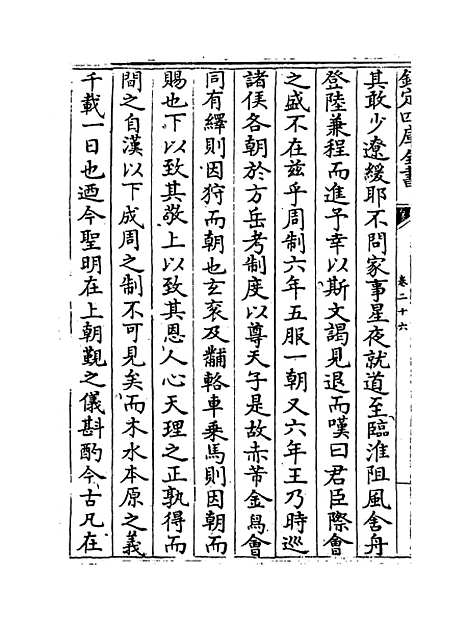 欽定四庫全書
卷二十六
其敢少遼緩耶不問家事星夜就道至臨淮阻風舍舟
登陸兼程而進予幸以斯文謁見退而嘆曰君臣際會
之盛不在兹乎周制六年五服一朝又六年王乃時巡
諸侯各朝於方岳考制度以尊天子是故赤芾金舄會
同有繹則因狩而朝也玄衮及黼輅車乗馬則因朝而
賜也下以致其敬上以致其恩人心天理之正孰得而
間之自漢以下成周之制不可見矣而木水本原之義
千載一日也迺今聖明在上朝覲之儀斟酌今古凡在